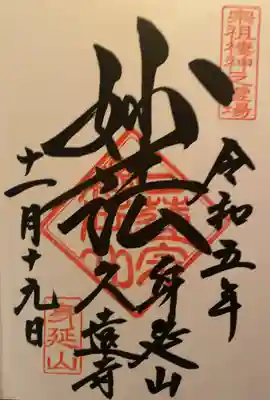 宗祖棲神之霊場
令和五年
身延山
妙法
久遠寺
十一月十九日
身延山